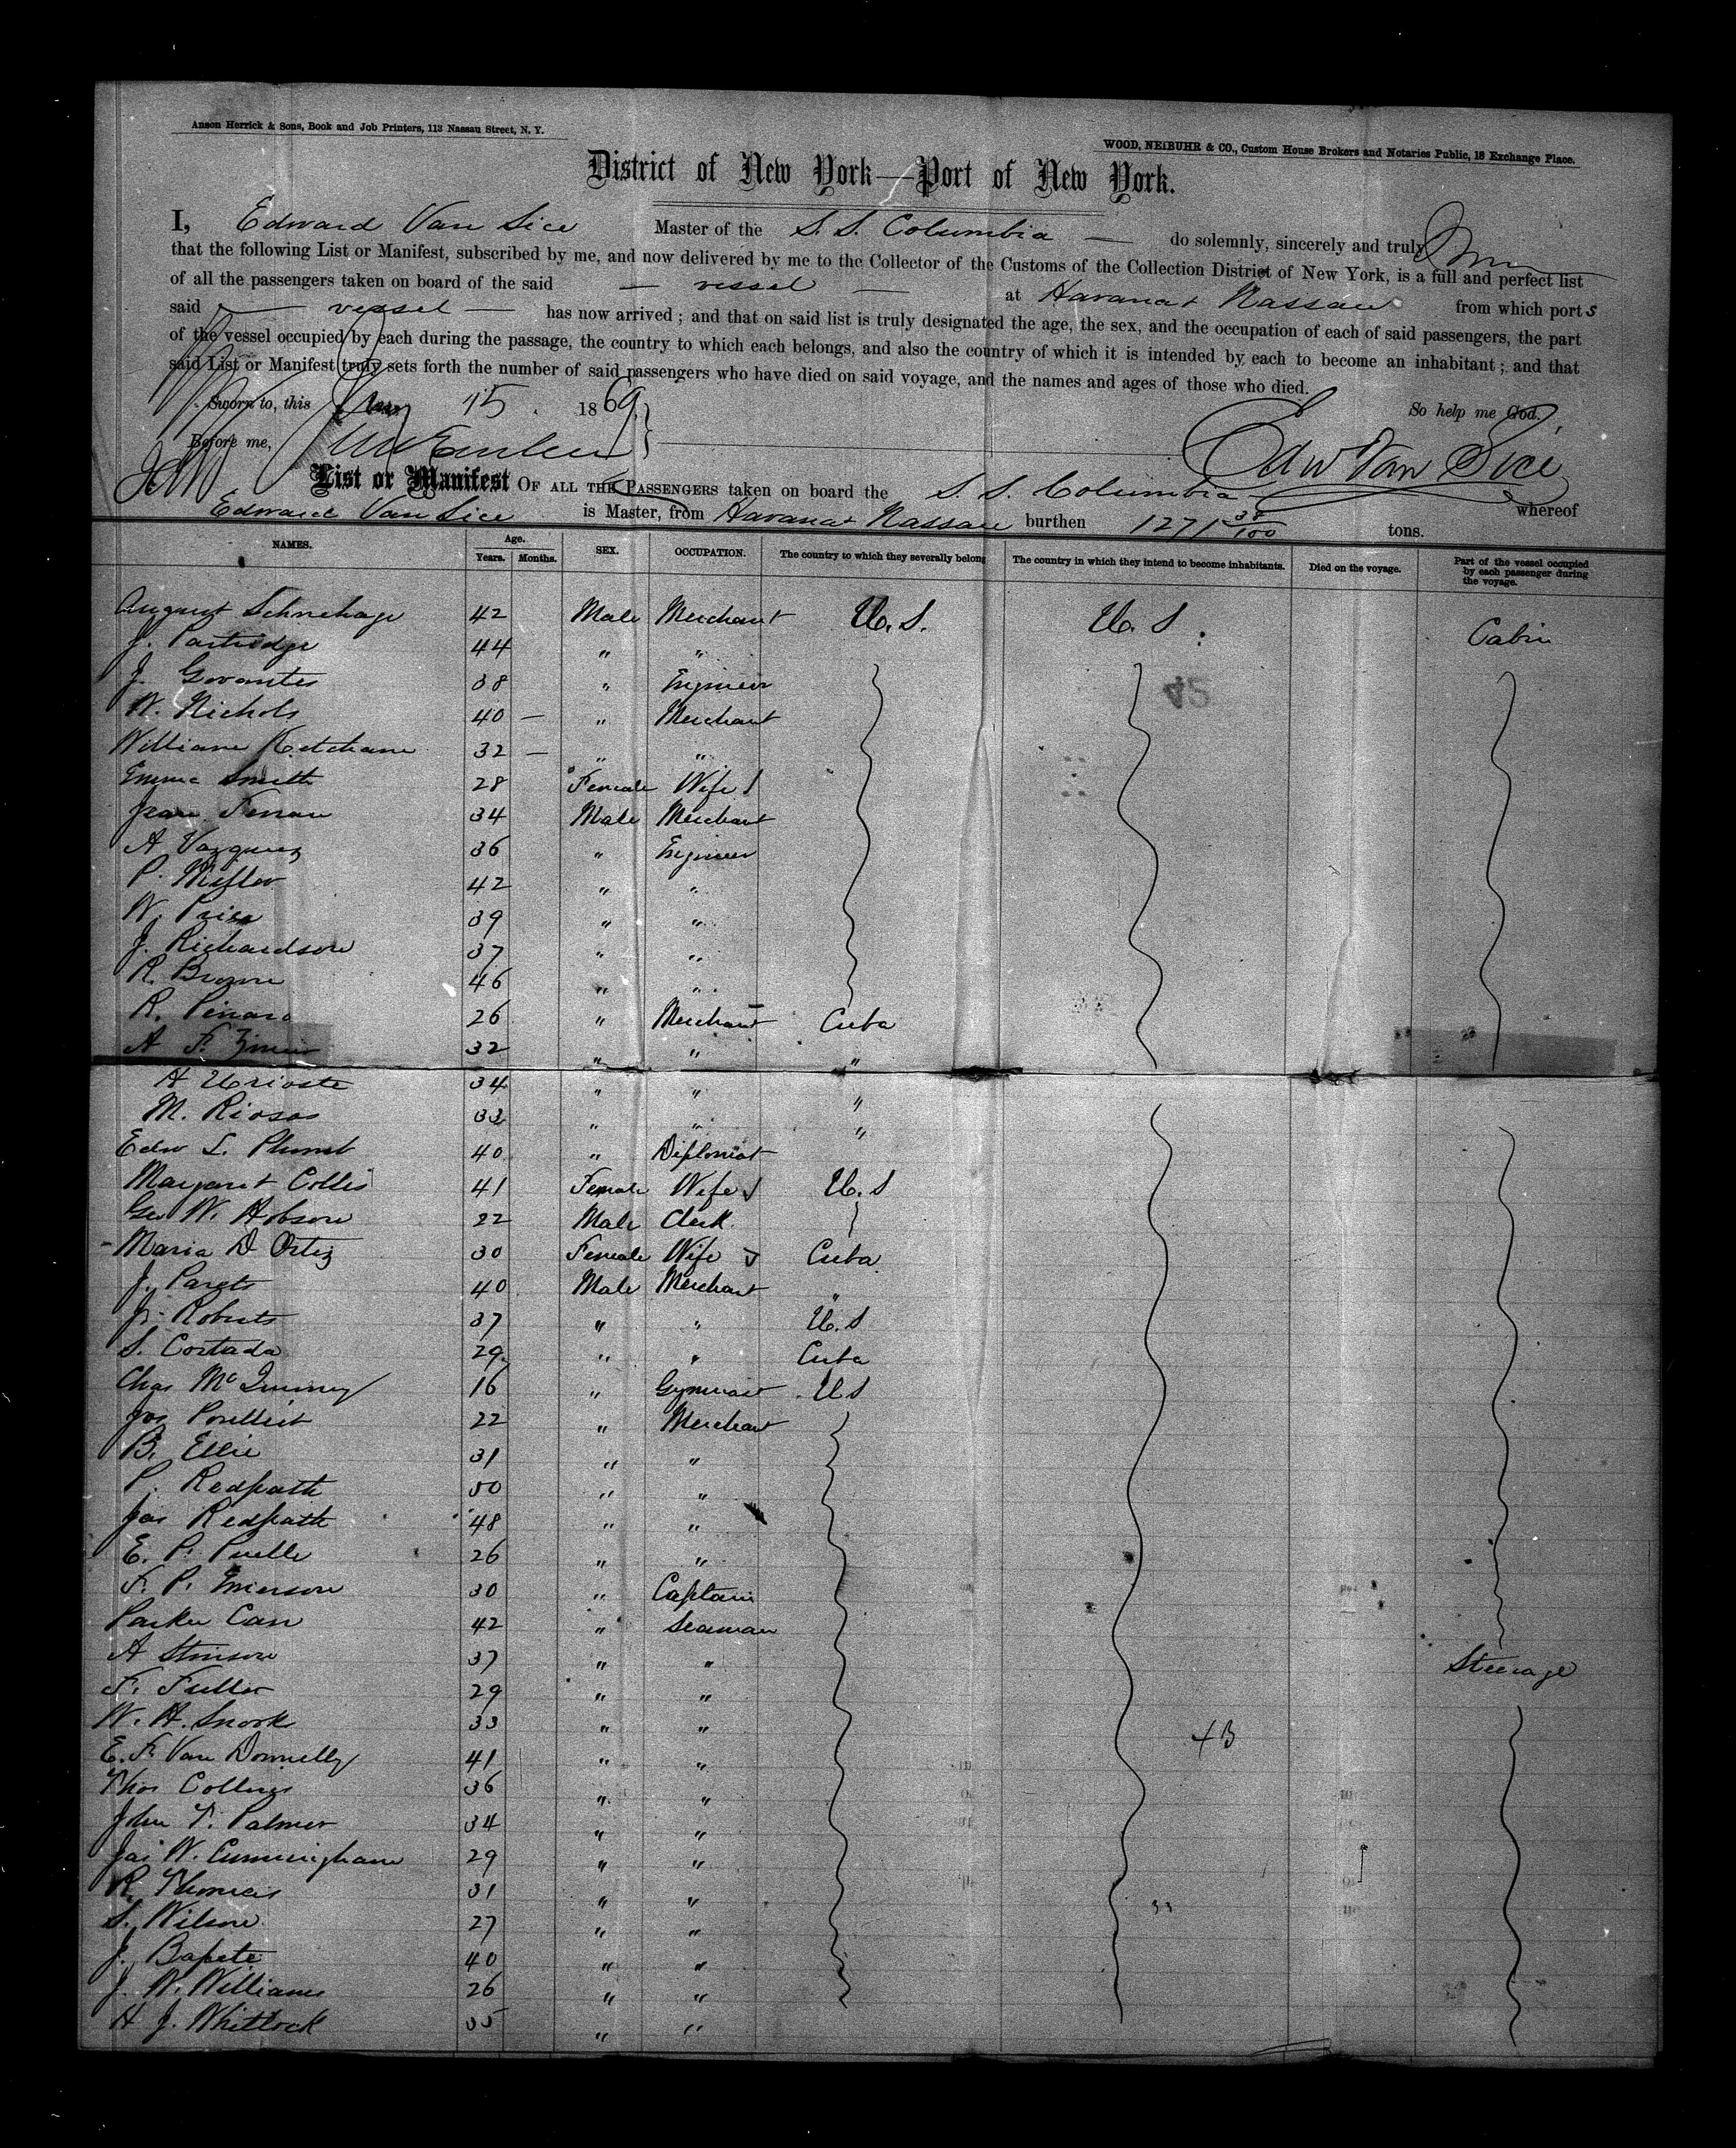 Anson Herrick & Sons, Book and Job Printers, 113 Nassau Street, N. Y.
WOOD, NEIBUHR & CO., Custom House Brokers and Notaries Public, 18 Exchange Place.
District of New York—Port of New York.
I, Edward Van Sice Master of the S. S. Columbia — do solemnly, sincerely and truly
that the following List or Manifest, subscribed by me, and now delivered by me to the Collector of the Customs of the Collection District of New York, is a full and perfect list
of all the passengers taken on board of the said — vessel — at Havana & Nassau from which ports
said — vessel — has now arrived; and that on said list is truly designated the age, the sex, and the occupation of each of said passengers, the part
of the vessel occupied by each during the passage, the country to which each belongs, and also the country of which it is intended by each to become an inhabitant; and that
said List or Manifest truly sets forth the number of said passengers who have died on said voyage, and the names and ages of those who died.
Sworn to, this 15 1869 So help me God.
Before me, Edw Van Sice
List or Manifest OF ALL THE PASSENGERS taken on board the S. S. Columbia whereof
Edward Van Sice is Master, from Havana & Nassau burthen 1271 38/100 tons.
NAMES. Age. Years. Months. SEX. OCCUPATION. The country to which they severally belong The country in which they intend to become inhabitants. Died on the voyage. Part of the vessel occupied by each passenger during the voyage.
August Schnehage 42 Male Merchant U. S. U. S. Cabin
J. Partridge 44 " "
J. Govantes 38 " Engineer
W. Nichols 40 — " Merchant
William Ketcham 32 — " "
Emma Smith 28 Female Wife
34 Male Merchant
A Vazquez 36 " Engineer
P. 42 " "
W. Price 39 " "
J. Richardson 37 " "
R. Brown 46 " "
R. 26 " Merchant Cuba
A F. 32 " " "
A Urioste 34 " " "
M. Riosas 33 " " "
Edw L. Plumb 40 " Diplomat
Margaret Collis 41 Female Wife U. S
Geo W. Hobson 22 Male Clerk
Maria D Ortiz 30 Female Wife Cuba
J. 40 Male Merchant "
J. Roberts 37 " " U. S
S. Cortada 29 " " Cuba
Chas 16 " Gymnast U S
Jos 22 " Merchant
B. Ellie 31 " "
P. Redpath 50 " "
Jas Redpath 48 " "
E. P. 26 " "
F. P. Emerson 30 " Captain
Parker Carr 42 " Seaman
A Stinson 37 " " Steerage
F. Fuller 29 " "
W. H. Snook 33 " "
E. F. Van Donnelly 41 " "
Thos Collins 36 " "
John T. Palmer 34 " "
Jas W. Cunningham 29 " "
R. Thomas 31 " "
S. Wilson 27 " "
J. 40 " "
J. W. Williams 26 " "
H J. Whitlock 35 " "